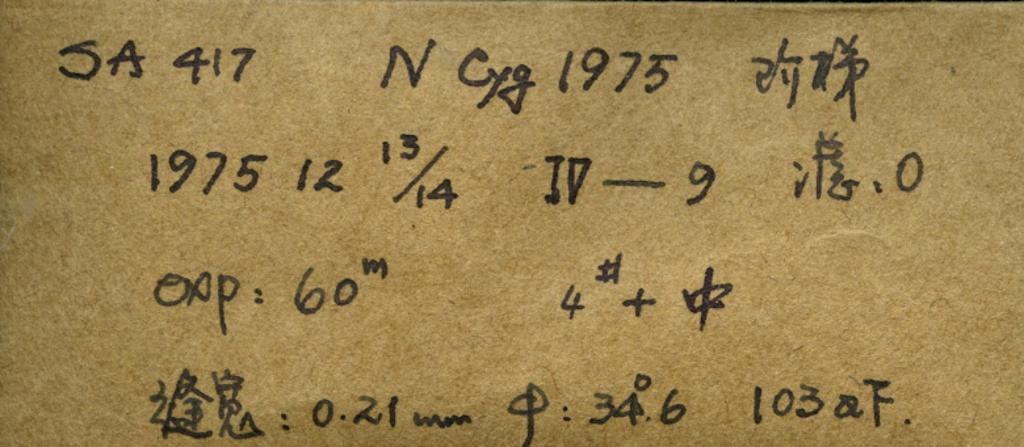 SA 417 N Cyg 1975 阶梯
1975 12 13/14 IV — 9 滤.0
exp: 60m 4# + 中
缝宽: 0.21mm φ: 34°.6 103aF.